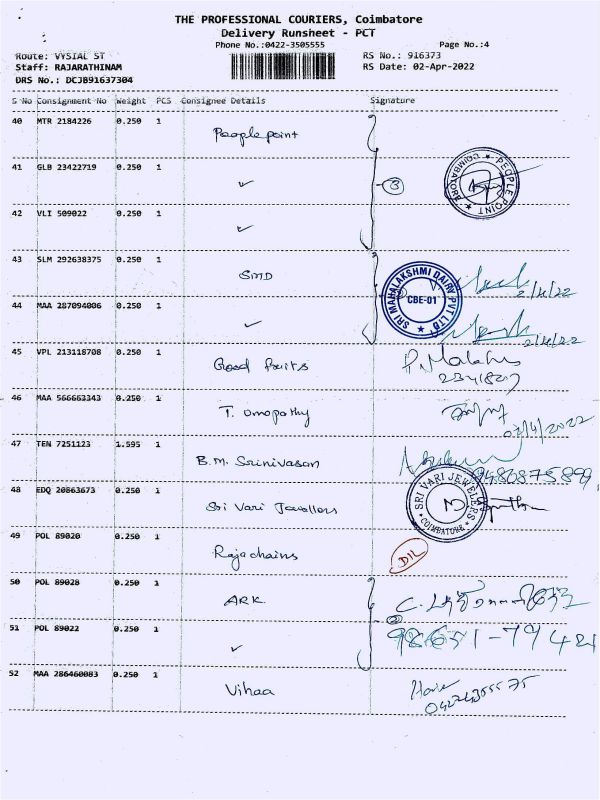 THE PROFESSIONAL COURIERS, Coimbatore
Delivery Runsheet - PCT
Phone No.:0422-3505555 Page No.:4
Route: VYSIAL ST RS No.: 916373
Staff: RAJARATHINAM RS Date: 02-Apr-2022
DRS No.: DCJB91637304
S No Consignment No Weight PCS Consignee Details Signature
40 MTR 2184226 0.250 1 People point
41 GLB 23422719 0.250 1 ✓ 3 PEOPLE POINT COIMBATORE
42 VLI 509022 0.250 1 ✓
43 SLM 292638375 0.250 1 SMD 2/4/22
SRI MAHALAKSHMI DAIRY PVT LTD CBE-01
44 MAA 287094006 0.250 1 ✓ 2/4/22
45 VPL 213118708 0.250 1 Good fruits
46 MAA 566663343 0.250 1 T. Umapathy 02/4/2022
47 TEN 7251123 1.595 1 B.M. Srinivasan
48 EDQ 20863673 0.250 1 Sri Vari Jewellers SRI VARI JEWELERS COIMBATORE
49 POL 89020 0.250 1 Rajachains DIL
50 POL 89028 0.250 1 ARK
51 POL 89022 0.250 1 ✓
52 MAA 286460083 0.250 1 Vihaa